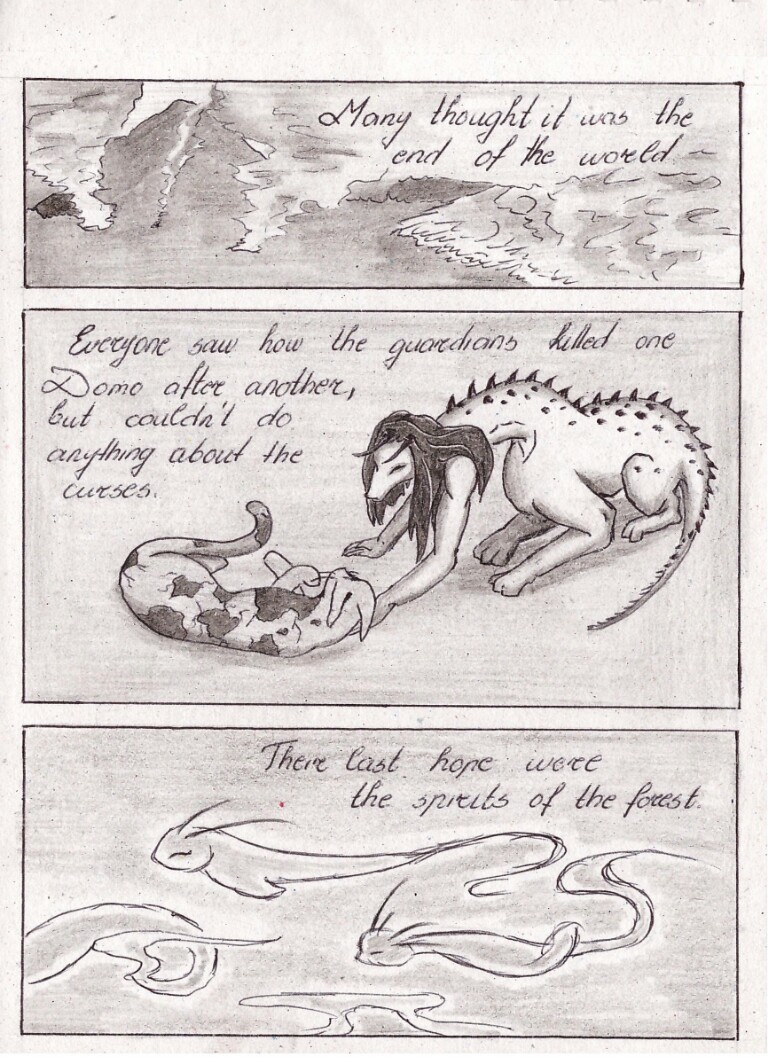 Many thought it was the
end of the world
Everyone saw how the guardians killed one
Domo after another,
but couldn't do
anything about the
curses.
Their last hope were
the spirits of the forest.